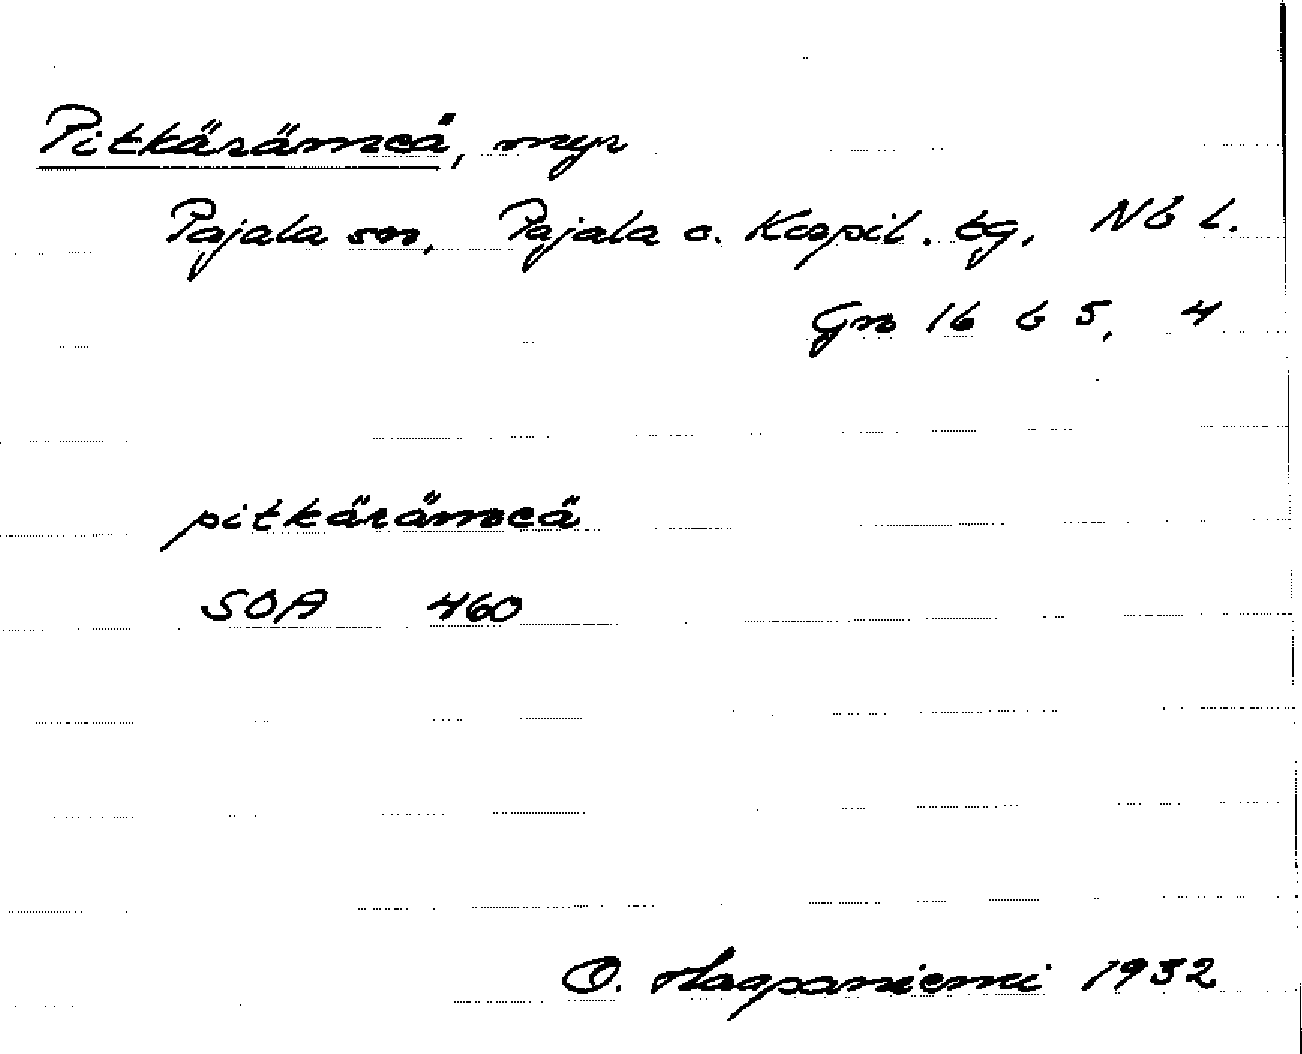 Pitkärämeä, myr
Pajala sn, Pajala o. Kapil. tg, Nb l.
Gn 16 b 5, 4
pitkärämeä
SOA 460
O. Haapaniemi 1932